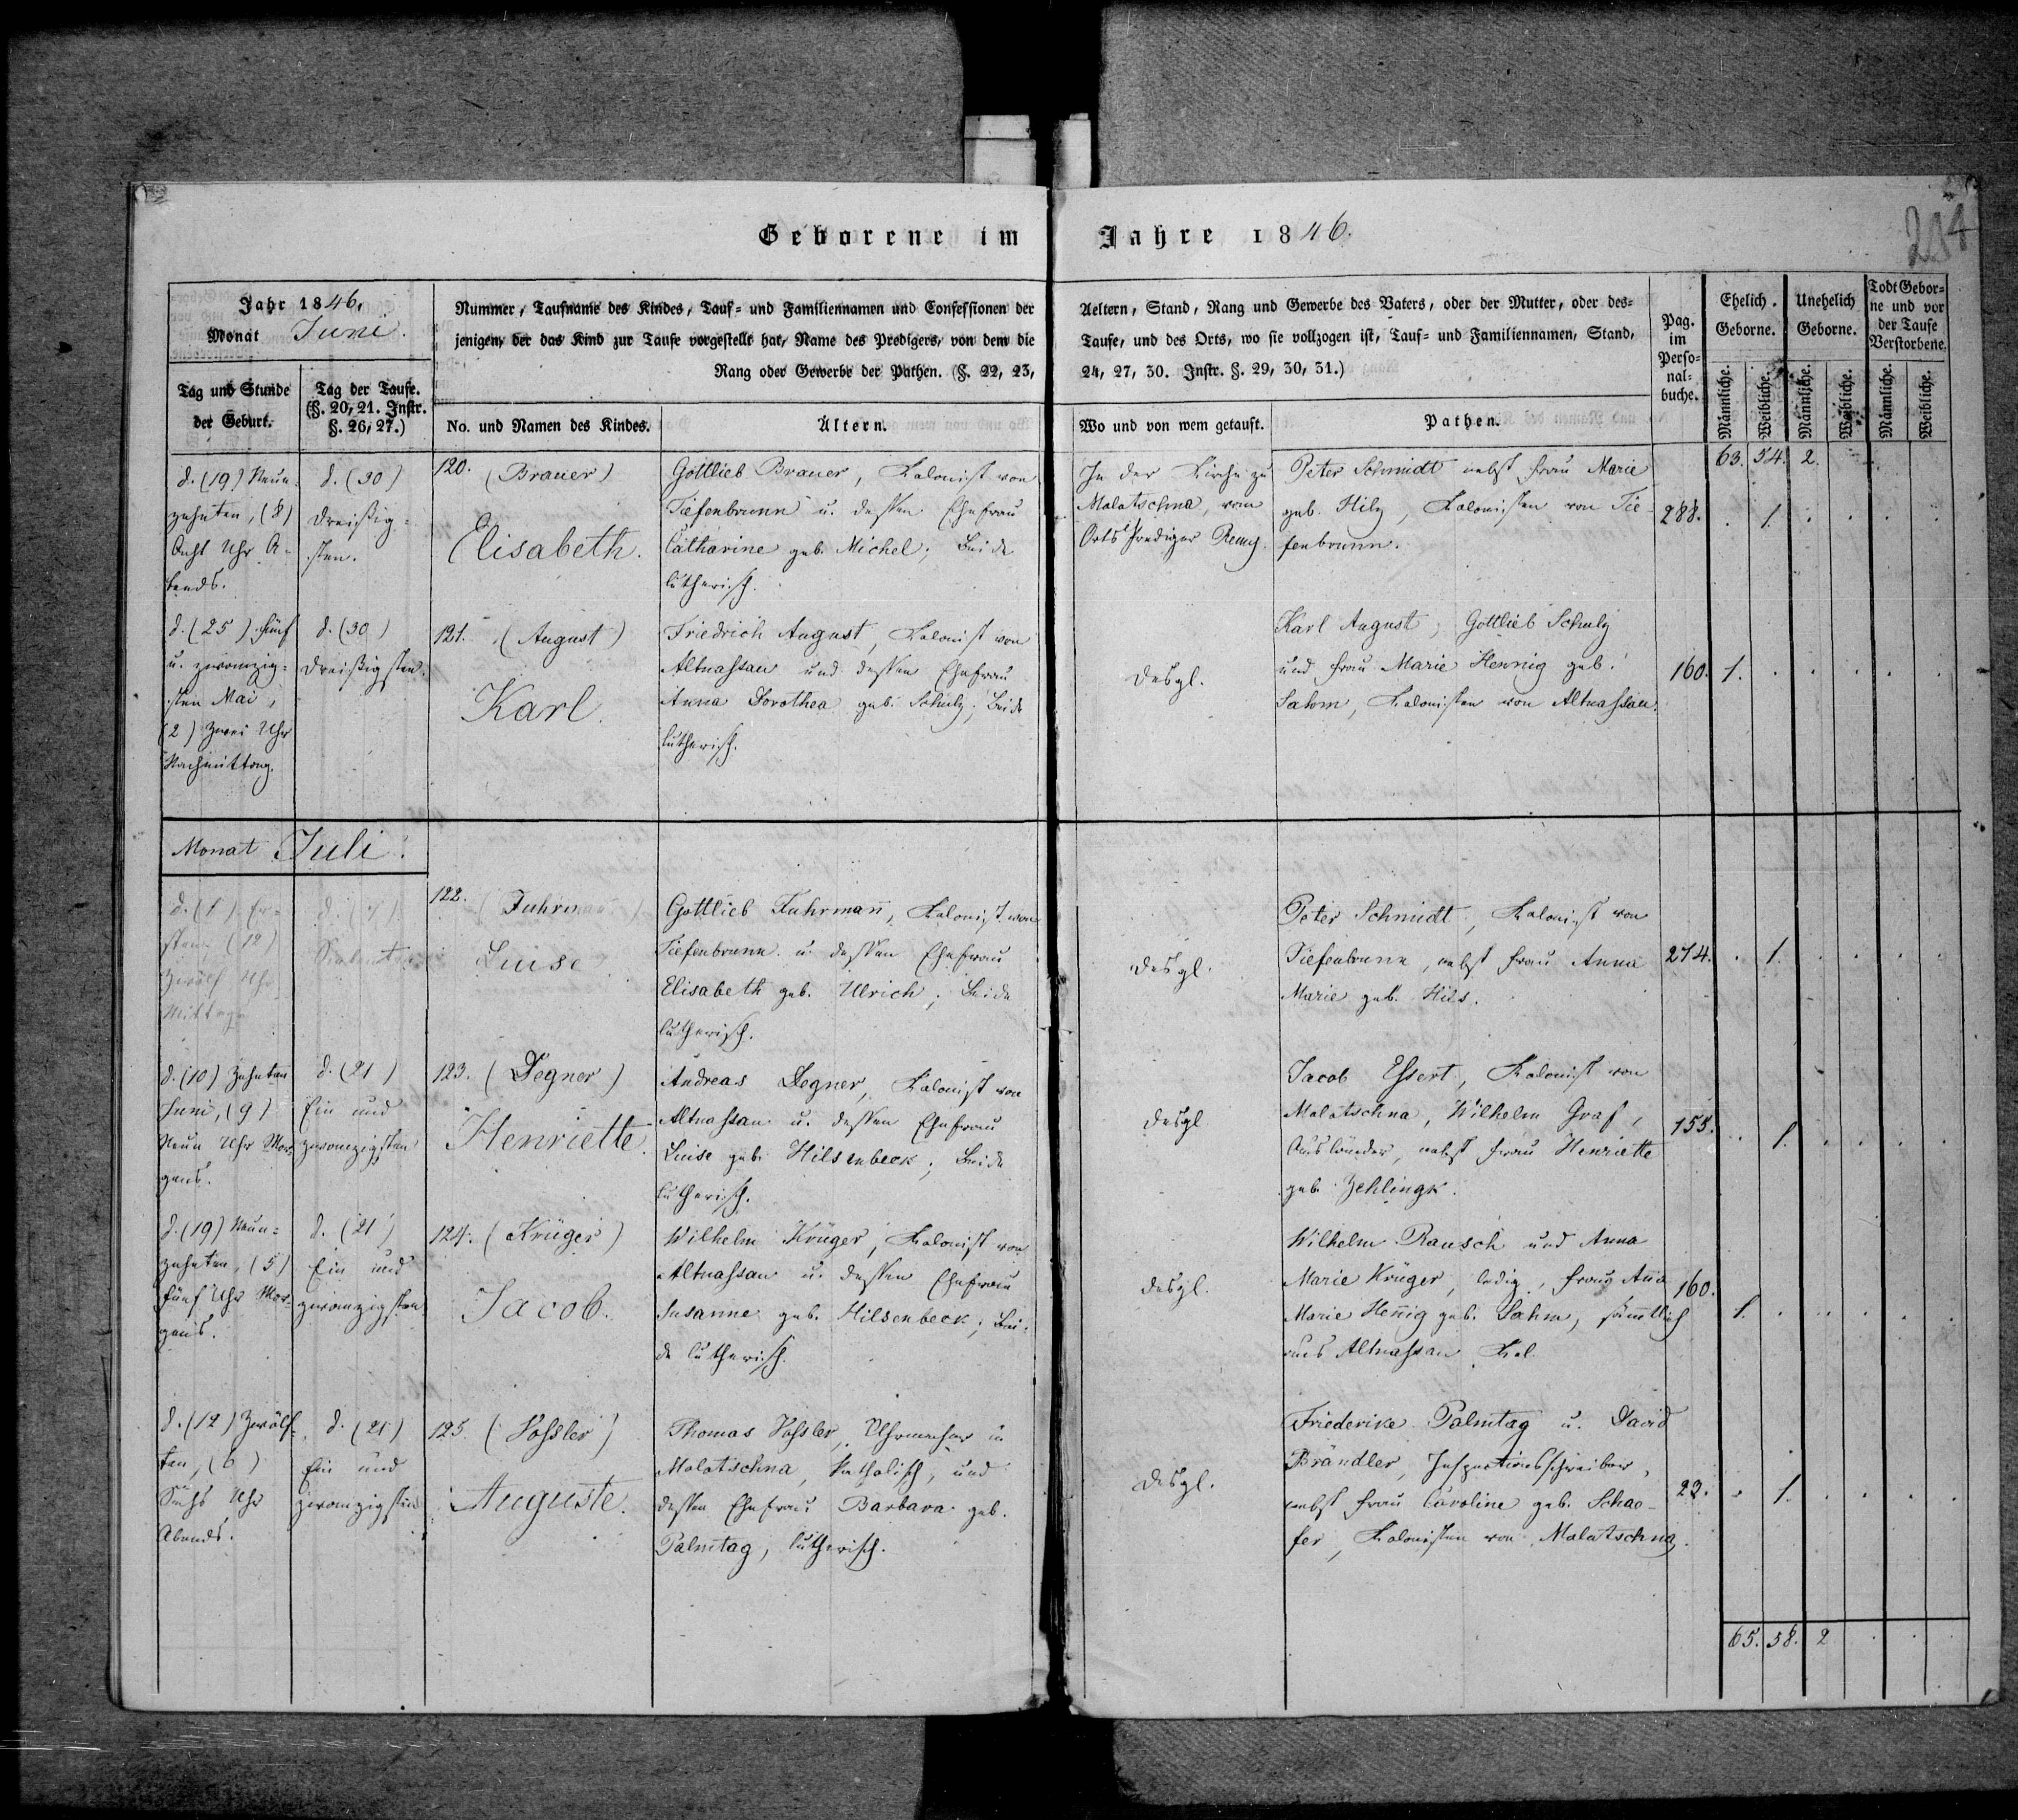 Geborene im Jahre 1846.
234
Jahr 1846,
Monat Juni.
Tag und Stunde
der Geburt.
Tag der Taufe.
(§. 20, 21. Instr.
§. 26, 27.)
Nummer, Taufname des Kindes, Tauf- und Familiennamen und Confessionen der
jenigen, der das Kind zur Taufe vorgestellt hat, Name des Predigers, von dem die
Rang oder Gewerbe der Pathen. (§. 22, 23,
No. und Namen des Kindes.
Ältern.
Aeltern, Stand, Rang und Gewerbe des Vaters, oder der Mutter, oder des-
Taufe, und des Orts, wo sie vollzogen ist, Tauf- und Familiennamen, Stand,
24, 27, 30. Instr. §. 29, 30, 31.)
Wo und von wem getauft.
Pathen.
Pag.
im
Perso-
nal-
buche.
Ehelich
Geborne.
Unehelich
Geborne.
Todt Gebor-
ne und vor
der Taufe
Verstorbene.
Männliche.
Weibliche.
Männliche.
Weibliche.
Männliche.
Weibliche.
63. 54. 2.
d. (19) Neun-
zehnten, (8)
Acht Uhr A-
bends.
d. (30)
Dreißig-
sten.
120. (Brauer)
Elisabeth.
Gottlieb Brauer, Kolonist von
Tiefenbrunn u. dessen Ehefrau
Catharine geb. Michel; Beide
lutherisch.
In der Kirche zu
Molotschna, vom
Ortsprediger
Peter Schmidt nebst Frau Marie
geb. Hilz, Kolonisten von Tie-
fenbrunn.
288. . 1. . . . .
d. (25) Fünf
u. zwanzig-
sten Mai,
(2) Zwei Uhr
Nachmittag.
d. (30)
Dreißigsten.
121. (August)
Karl.
Friedrich August, Kolonist von
Altnassau und dessen Ehefrau
Anna Dorothea geb. Schulz; Beide
lutherisch.
Desgl.
Karl August, Gottlieb Schulz
und Frau Marie Hennig geb.
Salom, Kolonisten von Altnassau.
160. 1. . . . . .
Monat Juli.
d. (1) Er-
sten, (12)
Zwölf Uhr
Mittags
d. (7)
Siebenten
122. (Fuhrmann)
Luise
Gottlieb Fuhrmann, Kolonist von
Tiefenbrunn u. dessen Ehefrau
Elisabeth geb. Ulrich; Beide
lutherisch.
Desgl.
Peter Schmidt, Kolonist von
Tiefenbrunn, nebst Frau Anna
Marie geb. Hils.
274. . 1. . . . .
d. (10) Zehnten
Juni, (9)
Neun Uhr Mor-
gens.
d. (21)
Ein und
zwanzigsten
123. (Degner)
Henriette.
Andreas Degner, Kolonist von
Altnassau u. dessen Ehefrau
Luise geb. Hilsenbeck; Beide
lutherisch.
Desgl
Jacob Essert, Kolonist von
Molotschna, Wilhelm Graf,
Ausländer, nebst Frau Henriette
geb. Zehlingk.
155. . 1. . . . .
d. (19) Neun-
zehnten, (5)
Fünf Uhr Mor-
gens.
d. (21)
Ein und
zwanzigsten
124. (Krüger)
Jacob.
Wilhelm Krüger, Kolonist von
Altnassau u. dessen Ehefrau
Susanne geb. Hilsenbeck; Bei-
de lutherisch.
Desgl.
Wilhelm Rausch und Anna
Marie Krüger, ledig, Frau Anna
Marie Hennig geb. Sahm, sämmtlich
aus Altnassau Kol.
160. 1. . . . . .
d. (12) Zwölf-
ten, (6)
Sechs Uhr
Abends.
d. (21)
Ein und
zwanzigsten
125. (Vossler)
Auguste.
Thomas Vossler, Uhrmacher in
Molotschna, katholisch, und
dessen Ehefrau Barbara geb.
Palmtag, lutherisch.
Desgl.
Friederika Palmtag u. David
Brändler, Inspectionsschreiber,
nebst Frau Caroline geb. Schae-
fer, Kolonisten von Molotschna.
23. . 1. . . . .
65. 58. 2 . . .